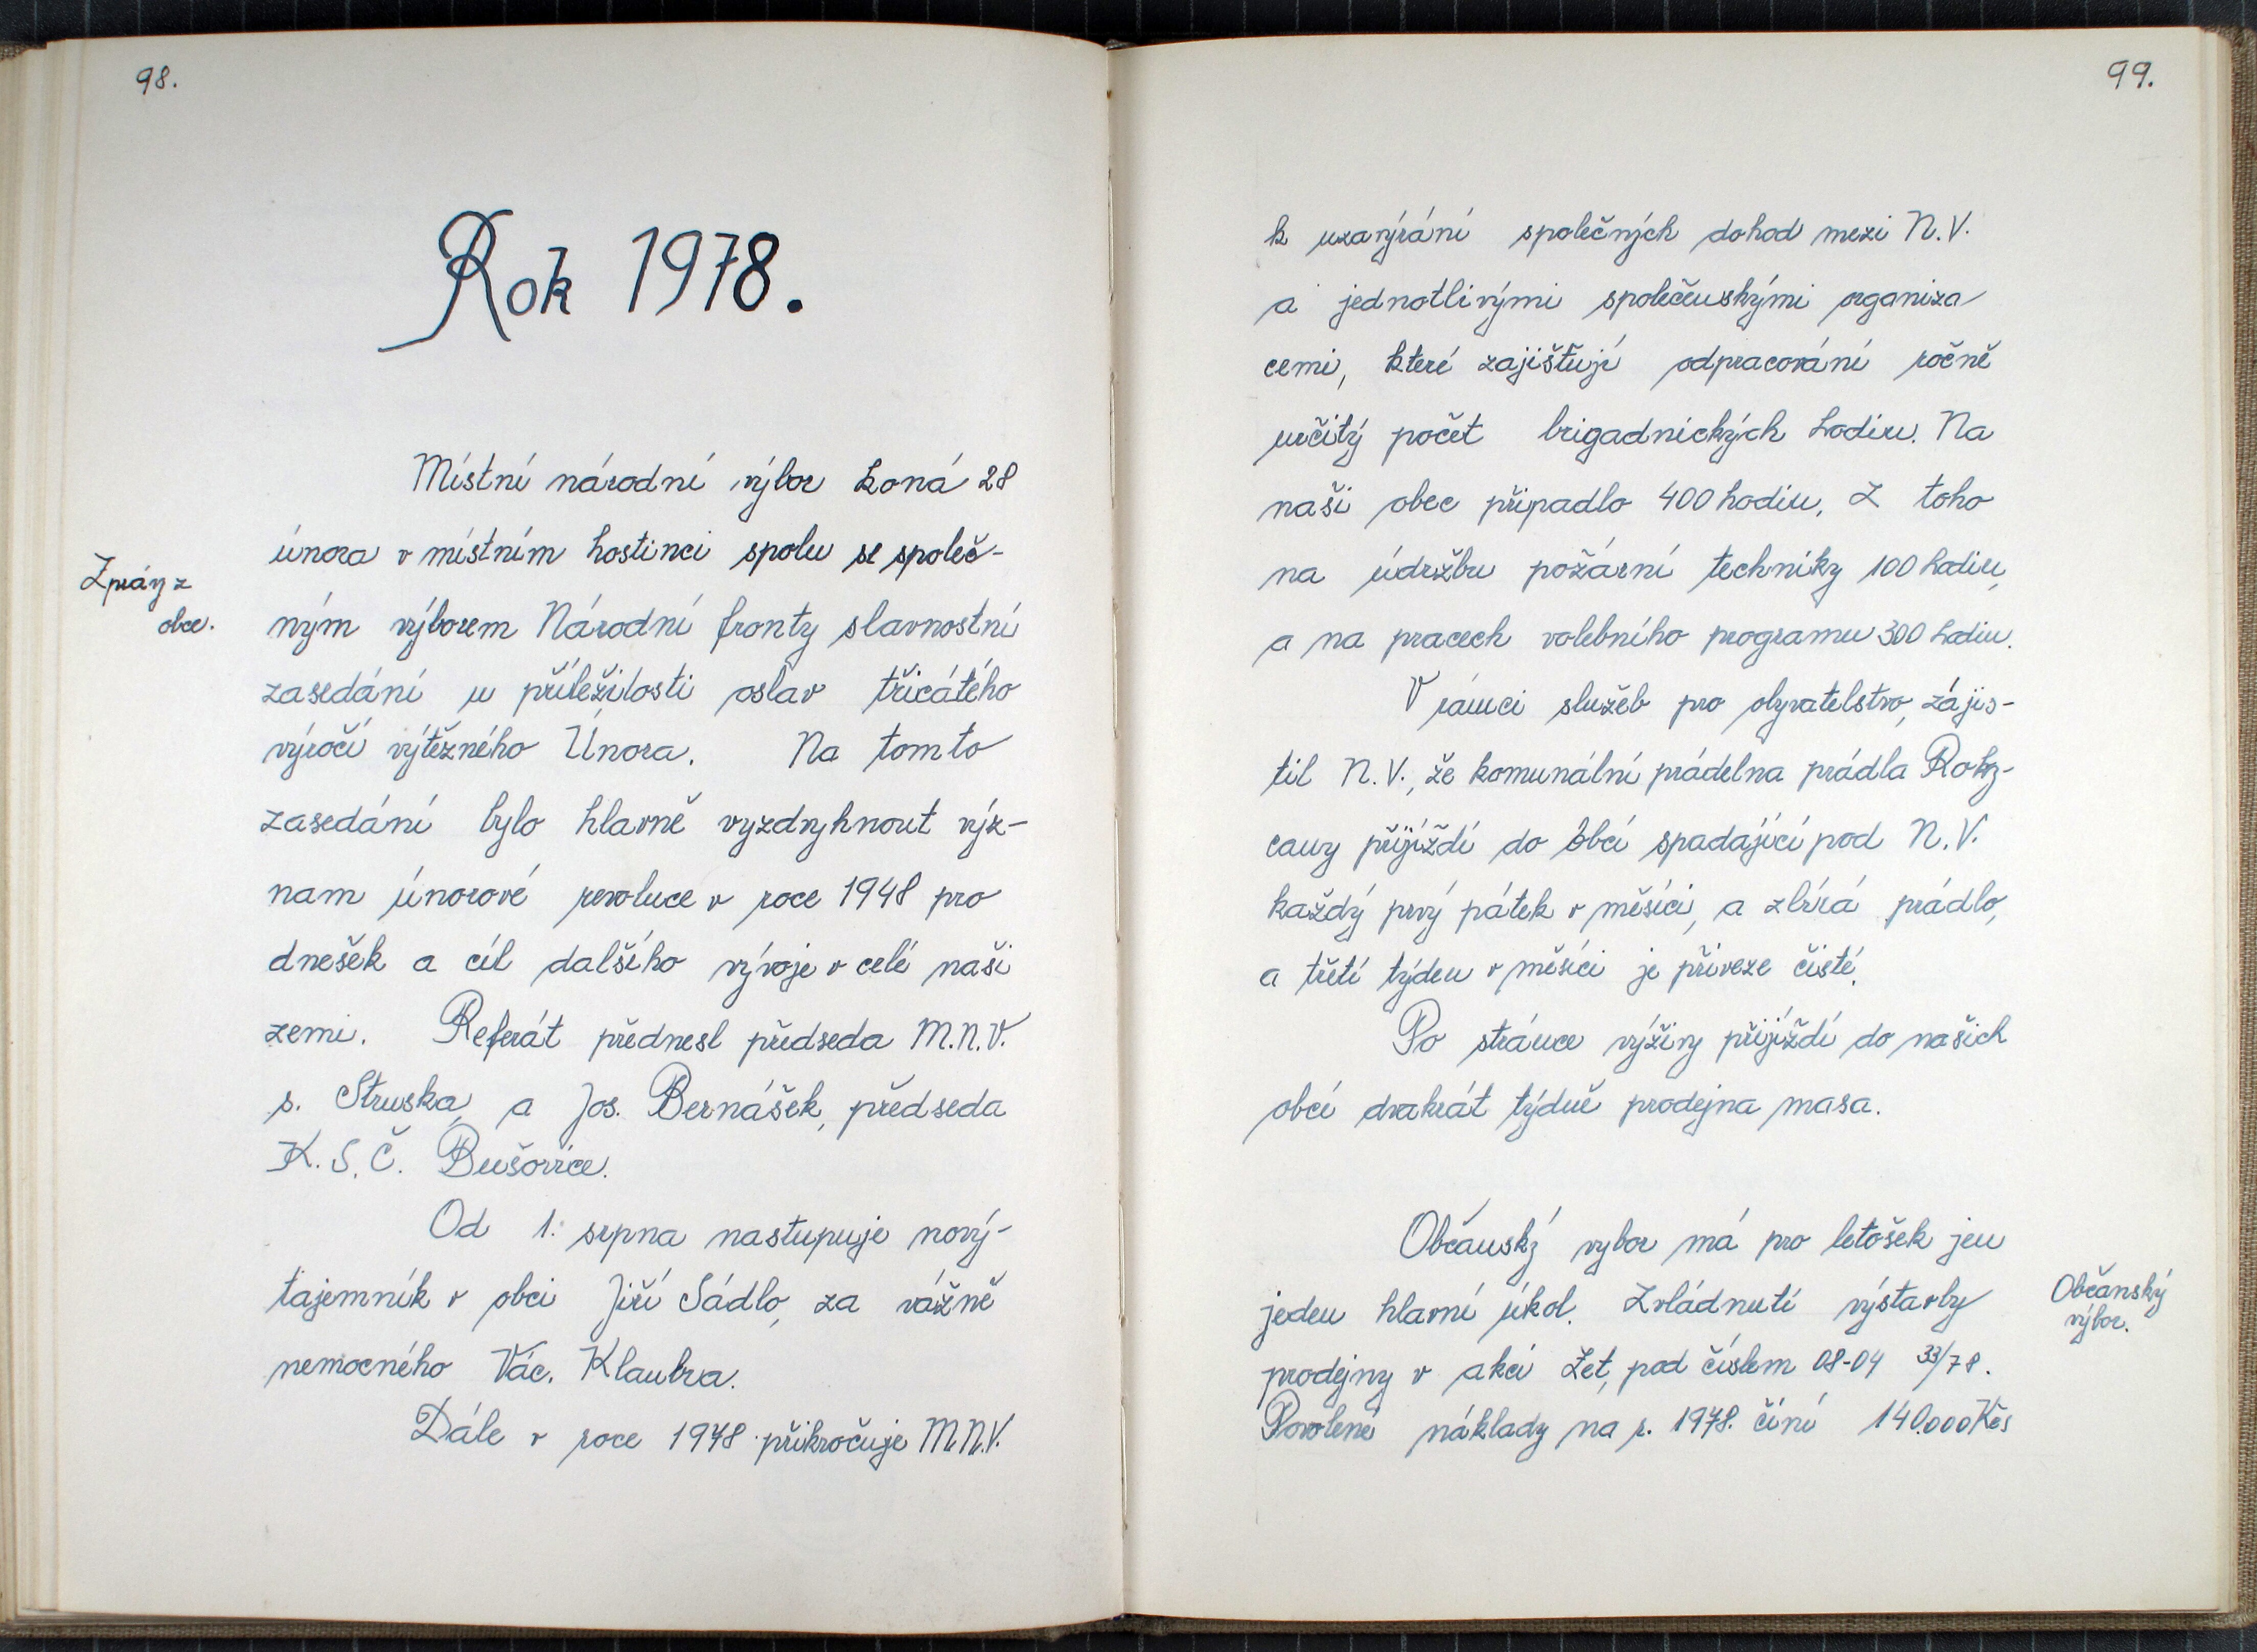 98.
Rok 1978.
Místní národní výbor koná 28
února v místním hostinci spolu se společ-
Zprávy z
obce.
ným výborem Národní fronty slavnostní
zasedání u příležilosti oslav třicátého
výročí výtězného Února. Na tomto
zasedání bylo hlavně vyzdvyhnout výz-
nam únorové revoluce v roce 1948 pro
dnešek a cíl dalšího vývoje v celé naši
zemi. Referát přednesl předseda M.N.V.
s. Struska, a Jos. Bernášek, předseda
K.S.Č. Bušovice.
Od 1. srpna nastupuje nový-
tajemník v obci Jiří Sádlo, za vážně
nemocného Vác. Klaubra.
Dále v roce 1978 přikročuje M.N.V.
99.
k uzavýrání společných dohod mezi N.V.
a jednotlivými společenskými organiza
cemi, které zajištují odpracování ročně
určitý počet brigadnických hodin. Na
naši obec připadlo 400 hodin, Z toho
na údržbu požární techniky 100 hodin,
a na pracech volebního programu 300 hodin.
V rámci služeb pro obyvatelstvo, zajis-
til N.V., že komunální prádelna prádla Roky-
cany přijíždí do obcí spadající pod N.V.
každý prvý pátek v měsíci, a zbírá prádlo,
a třetí týden v měsíci je přiveze čisté.
Po stránce výživy přijíždí do našich
obcí dvakrát týdně prodejna masa.
Občanský vybor má pro letošek jen
jeden hlavní úkol. Zvládnutí výstavby
Občanský
výbor.
prodejny v akci Zet, pod číslem 08-04 33/78.
Povolené náklady na r. 1978. činí 140.000 Kčs